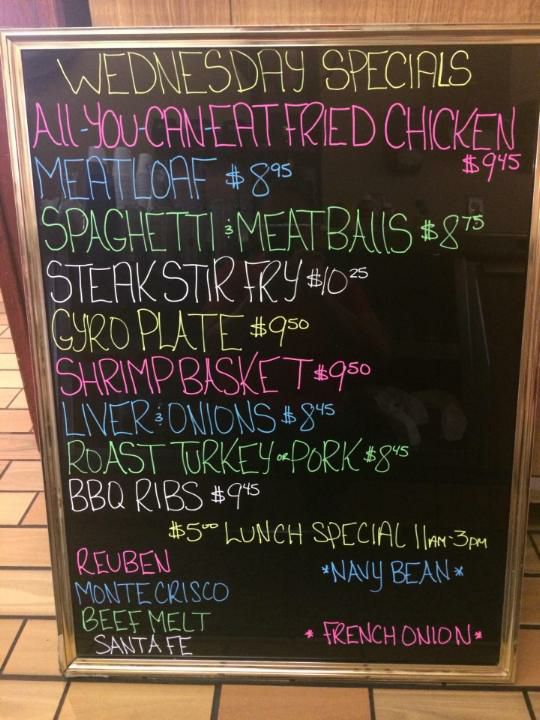 WEDNESDAY SPECIALS
All-YOU-CAN-EAT FRIED CHICKEN
$9.45
MEATLOAF $8.95
SPAGHETTI & MEATBAllS $8.75
STEAK STIR FRY $10.25
GYRO PLATE $9.50
SHRIMP BASKET $9.50
LIVER & ONIONS $8.45
ROAST TURKEY OR PORK $8.45
BBQ RIBS $9.45
$5.00 LUNCH SPECIAL 11AM-3PM
REUBEN
*NAVY BEAN*
MONTE CRISCO
BEEF MELT
*FRENCH ONION*
SANTA FE